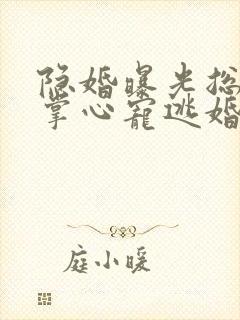 隐婚曝光总
掌心宠逃婚
庭小暖